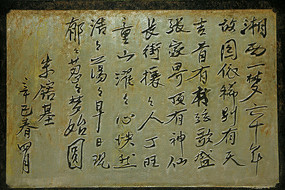 湘西一梦六十年
故园依稀别有天
吉首有 弦歌盛
张家界顶有神仙
长街攘々人丁旺
童山濯々心怏然
浩々荡々早日现
郁々葱々梦始圆
朱镕基
辛巳春四月